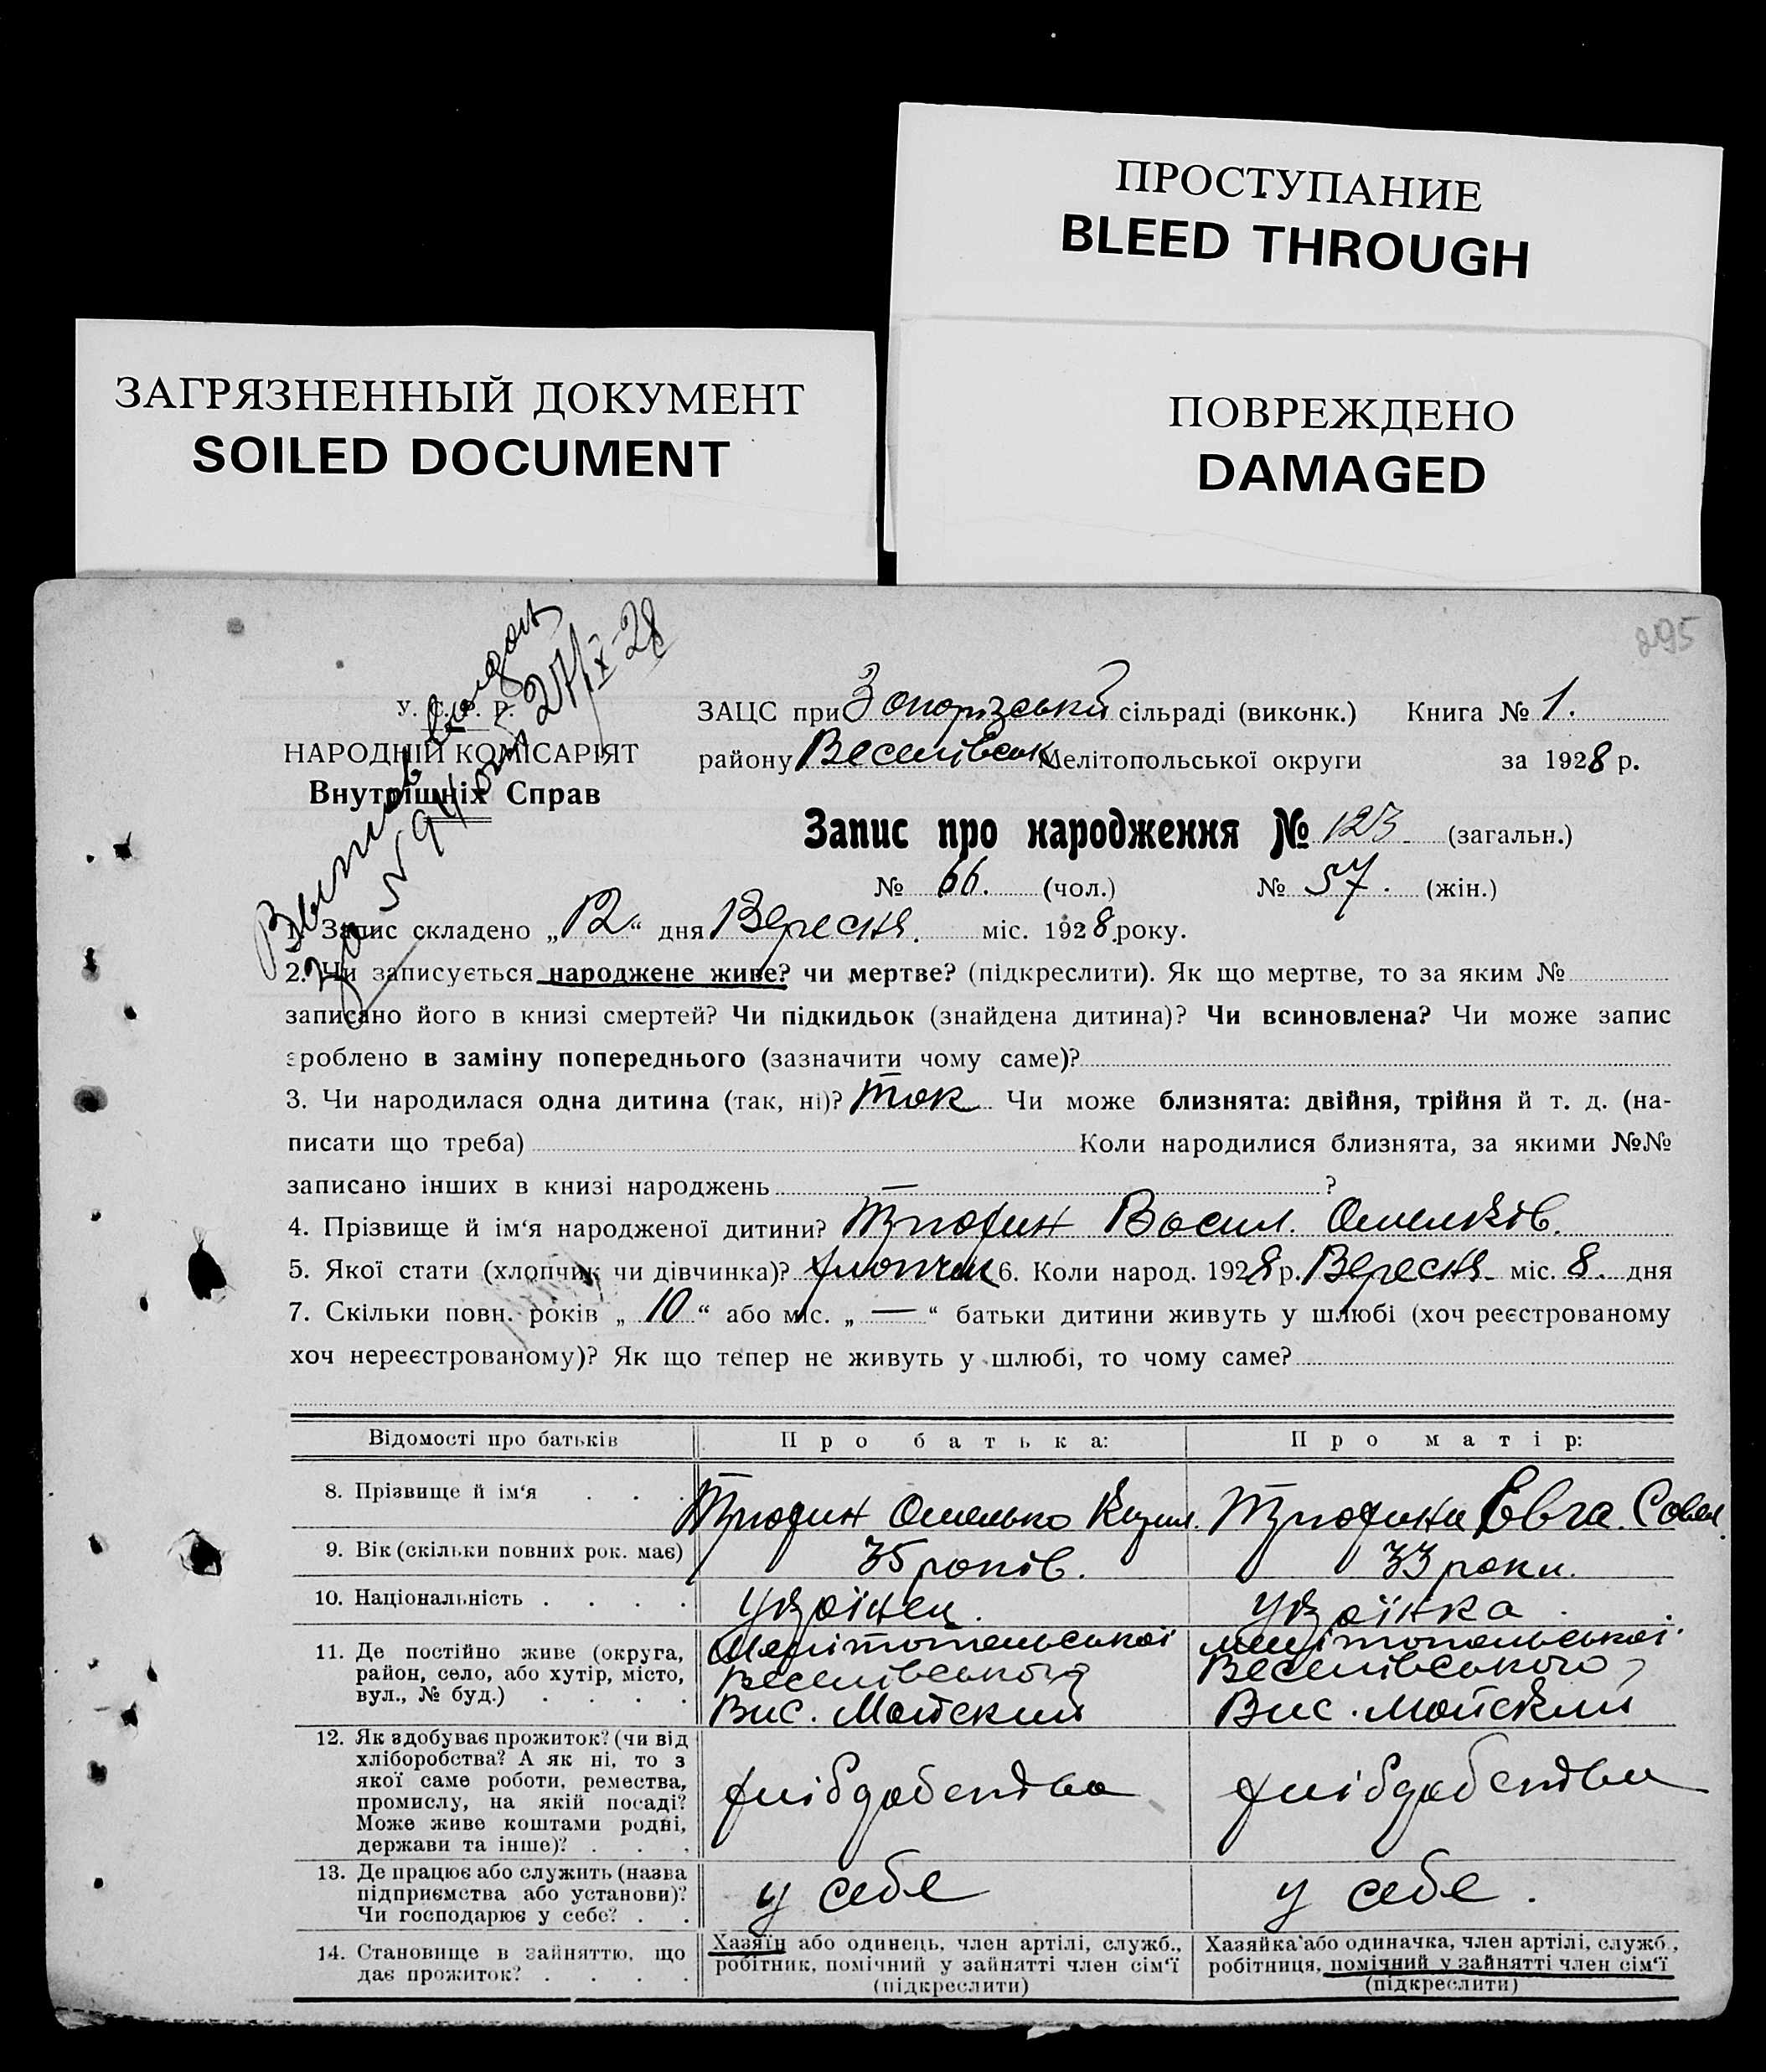 ПРОСТУПАНИЕ
BLEED THROUGH
ЗАГРЯЗНЕННЫЙ ДОКУМЕНТ
SOILED DOCUMENT
ПОВРЕЖДЕНО
DAMAGED
295
У. С. Р. Р.
НАРОДНІЙ КОМІСАРІЯТ
Внутрішніх Справ
ЗАЦС при Запорізській сільраді (виконк.) Книга № 1.
району Веселівськ Мелітопольської округи за 1928 р.
Запис про народження № 123 (загальн.)
№ 66. (чол.) № 57. (жін.)
1. Запис складено „12“ дня Вересня. міс. 1928 року.
2. Чи записується народжене живе? чи мертве? (підкреслити). Як що мертве, то за яким №
записано його в книзі смертей? Чи підкидьок (знайдена дитина)? Чи всиновлена? Чи може запис
зроблено в заміну попереднього (зазначити чому саме)?
3. Чи народилася одна дитина (так, ні)? так Чи може близнята: двійня, трійня й т. д. (на-
писати що треба) Коли народилися близнята, за якими №№
записано інших в книзі народжень — ?
4. Прізвище й ім‘я народженої дитини? Трюфин Васил. Омельків.
5. Якої стати (хлопчик чи дівчинка)? хлопчик 6. Коли народ. 1928 р. Вересня міс. 8. дня
7. Скільки повн. років „ 10 “ або міс. „ — “ батьки дитини живуть у шлюбі (хоч реєстрованому
хоч нереєстрованому)? Як що тепер не живуть у шлюбі, то чому саме?
Відомості про батьків Про батька: Про матір:
8. Прізвище й ім‘я . . . Трюфин Омелько Кирил. Трюфина Евга Савел.
9. Вік (скільки повних рок. має) 35 років. 33 роки.
10. Національність . . . . україінец. україінка.
11. Де постійно живе (округа, район, село, або хутір, місто, вул., № буд.) . . . .
Мелітопольської Мелітопольської
Веселівського Веселівського
Вис. Майский Вис. Майский
12. Як здобуває прожиток? (чи від
хліборобства? А як ні, то з
якої саме роботи, ремества,
промислу, на якій посаді?
Може живе коштами родні,
держави та інше)? . . .
хлібдобства хлібдобства
13. Де працює або служить (назва
підприємства або установи)?
Чи господарює у себе? . .
у себе у себе.
14. Становище в зайняттю, що
дає прожиток? . . . .
Хазяїн або одинець, член артілі, служб.,
робітник, помічний у зайнятті член сім‘ї
(підкреслити)
Хазяйка або одиначка, член артілі, служб.,
робітниця, помічний у зайнятті член сім‘ї
(підкреслити)